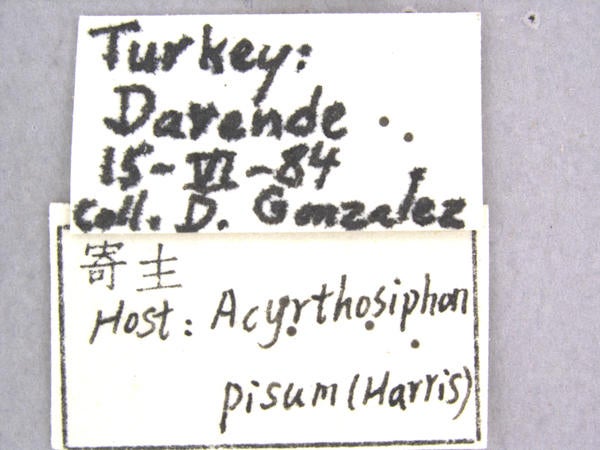 Turkey:
Darende
15-VI-84
Coll. D. Gonzalez
寄主
Host: Acyrthosiphon
pisum (Harris)